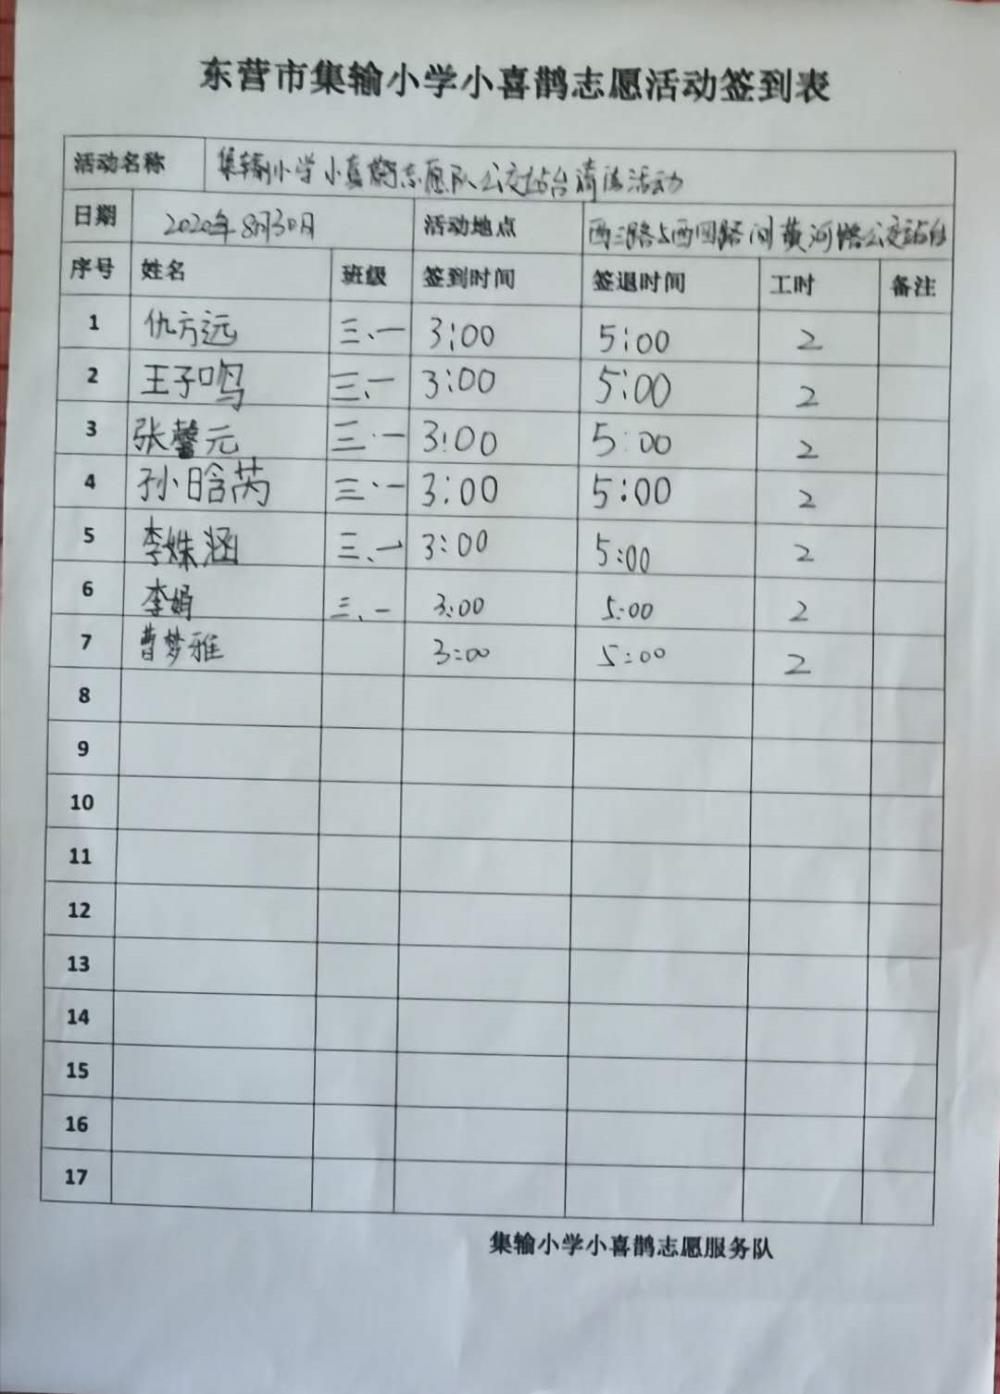 东营市集输小学小喜鹊志愿活动签到表
活动名称 集输小学小喜鹊志愿队公交站台清洁活动
日期 2020年8月30日 活动地点 西三路与西四路间黄河路公交站台
序号 姓名 班级 签到时间 签退时间 工时 备注
1 仇方远 三、一 3:00 5:00 2
2 王子鸣 三、一 3:00 5:00 2
3 张馨元 三、一 3:00 5:00 2
4 孙晗芮 三、一 3:00 5:00 2
5 李姝涵 三、一 3:00 5:00 2
6 李娟 三、一 3:00 5:00 2
7 曹梦雅 3:00 5:00 2
8
9
10
11
12
13
14
15
16
17
集输小学小喜鹊志愿服务队